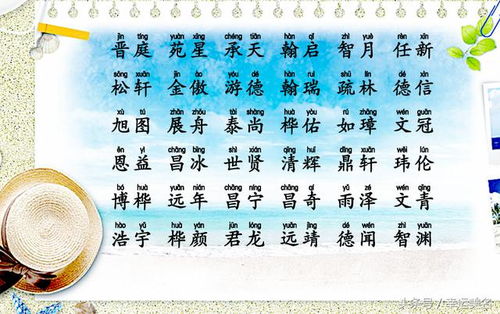 jìn tíng yuàn xīng chéng tiān hàn qǐ zhì yuè rèn xīn
晋庭 苑星 承天 翰启 智月 任新
sōng xuān jīn ào yóu dé hàn ruì shū lín dé xìn
松轩 金傲 游德 翰瑞 疏林 德信
xù tú zhǎn zhōu tài shàng huà yòu rú zhāng wén guān
旭图 展舟 泰尚 桦佑 如璋 文冠
ēn yì chāng bīng shì xián qīng huī dǐng xuān wěi lún
恩益 昌冰 世贤 清辉 鼎轩 玮伦
bó huà yuǎn nián chāng níng chāng qí yǔ zé wén qīng
博桦 远年 昌宁 昌奇 雨泽 文青
hào yǔ huà yán jūn lóng yuǎn jìng dé wén zhì yuān
浩宇 桦颜 君龙 远靖 德闻 智渊